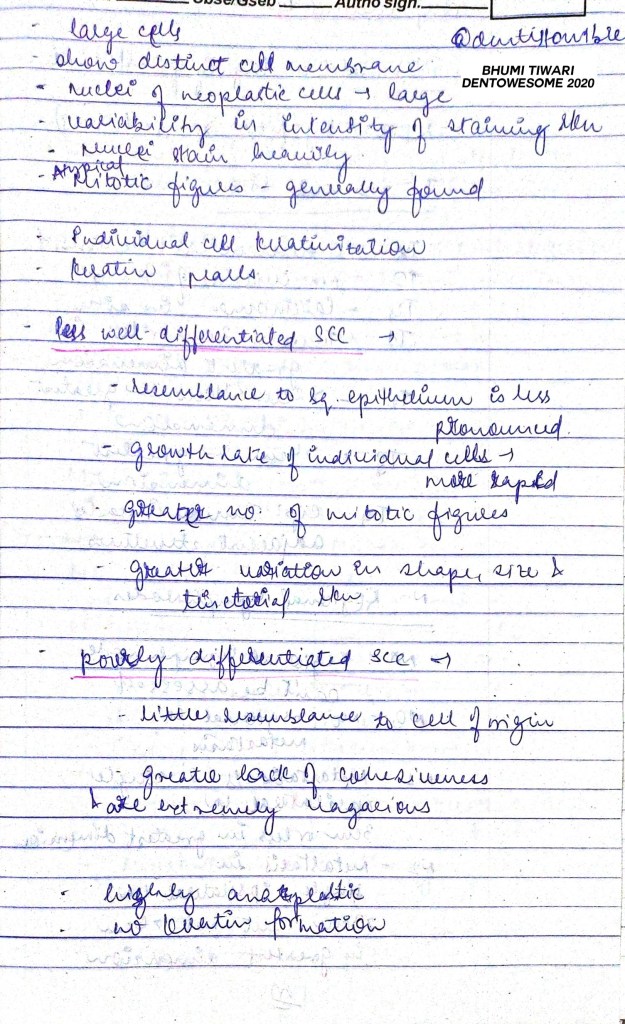 Obse/Gseb Autho sign.
large cells
@dentisson1ble
- show distinct cell membrane
BHUMI TIWARI
DENTOWESOME 2020
- nuclei of neoplastic cells → large
- variability in intensity of staining rkn
- nuclei stain heavily
- Atypical
Mitotic figures - generally found
Individual cell keratinization
- keratin pearls
- less well-differentiated SCC →
- resemblance to sq. epithelium is less
pronounced.
- growth rate of individual cells →
more rapid
greater no. of mitotic figures
- greater variation in shape, size &
tinctorial rkn
- poorly differentiated SCC →
- little resemblance to cell of origin
greater lack of cohesiveness
& are extremely vagacious
- highly anataplastic
- no keratin formation